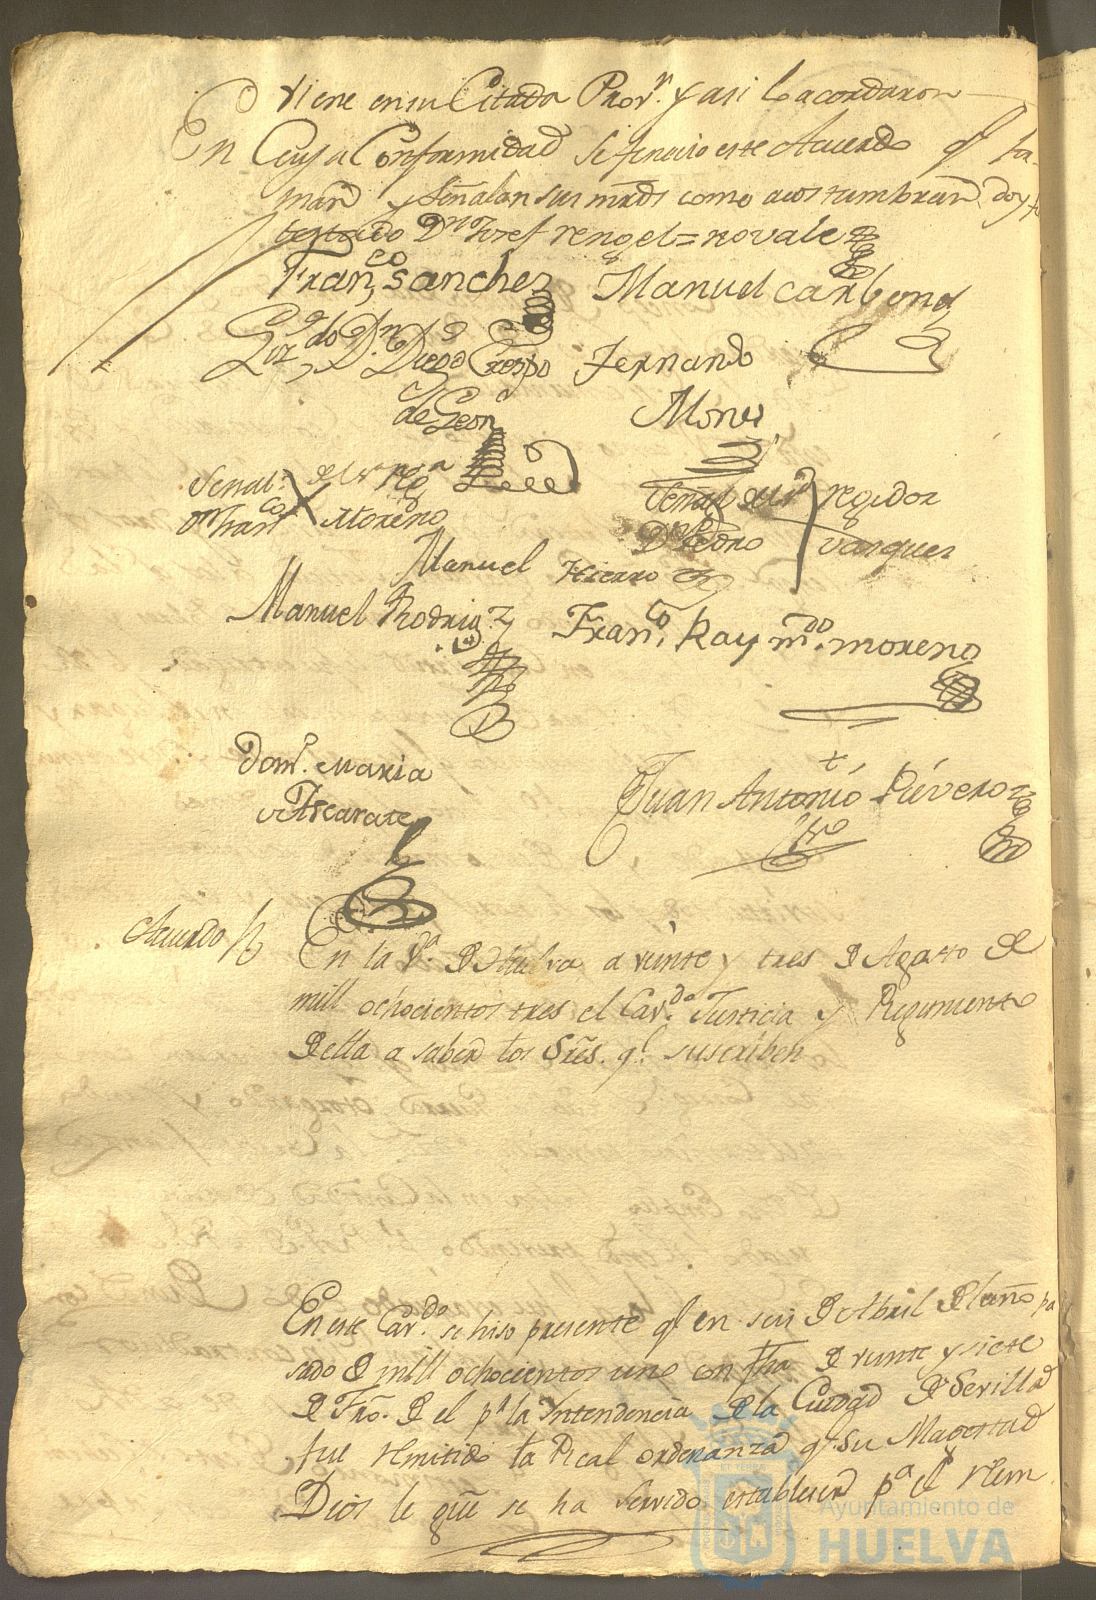 viene en su Citada Prov.n y asi lo acordaron
En Cuya Conformidad se fenecio este Acuerdo q.e fir-
man y Señalan sus mrds como acostumbran doy fe
testado D.n Josef rengel = no vale
Fran,co sanchez Manuel carbonel
Liz.do D.n Diego Crespo Fernando
de Leon
Mone
Señal del s.r reg.a Señal del s.r regidor
D.n Fran.co Moreno D.n Pedro Vasquez
Manuel Hierro
Manuel Rodrig.z Fran.co Raym.do moreno
Dom.o Maria Juan Antonio Riveroz
Ascarate
Acuerdo En la V.a de Huelva a veinte y tres de Agosto de
mill ochocientos tres el Cav.do Justicia y Regimiento
de ella a saber los Sres. q.e suscriben
En este Cav.do se hiso presente q.e en seis de Abril del año pa
sado de mill ochocientos uno con fha de veinte y siete
de Fro. de el p.r la Intendencia de la Ciudad de Sevilla
fue remitida la Real ordenanza q.e Su Magestad
Dios le gue se ha servido establecer p.a el Reem
Ayuntamiento de
HUELVA